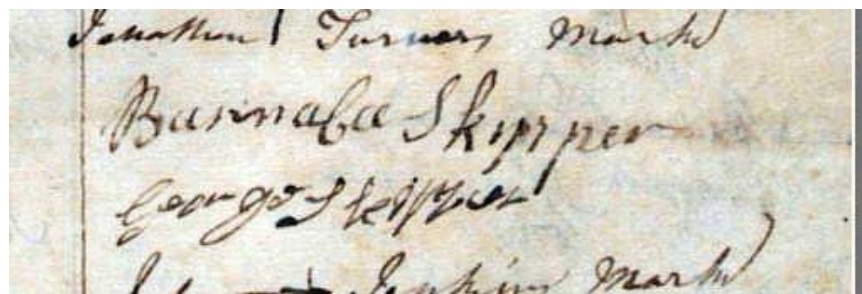 Jonathan Turners Mark
Barnaba Skipper
George Skipper
Jenkins Mark